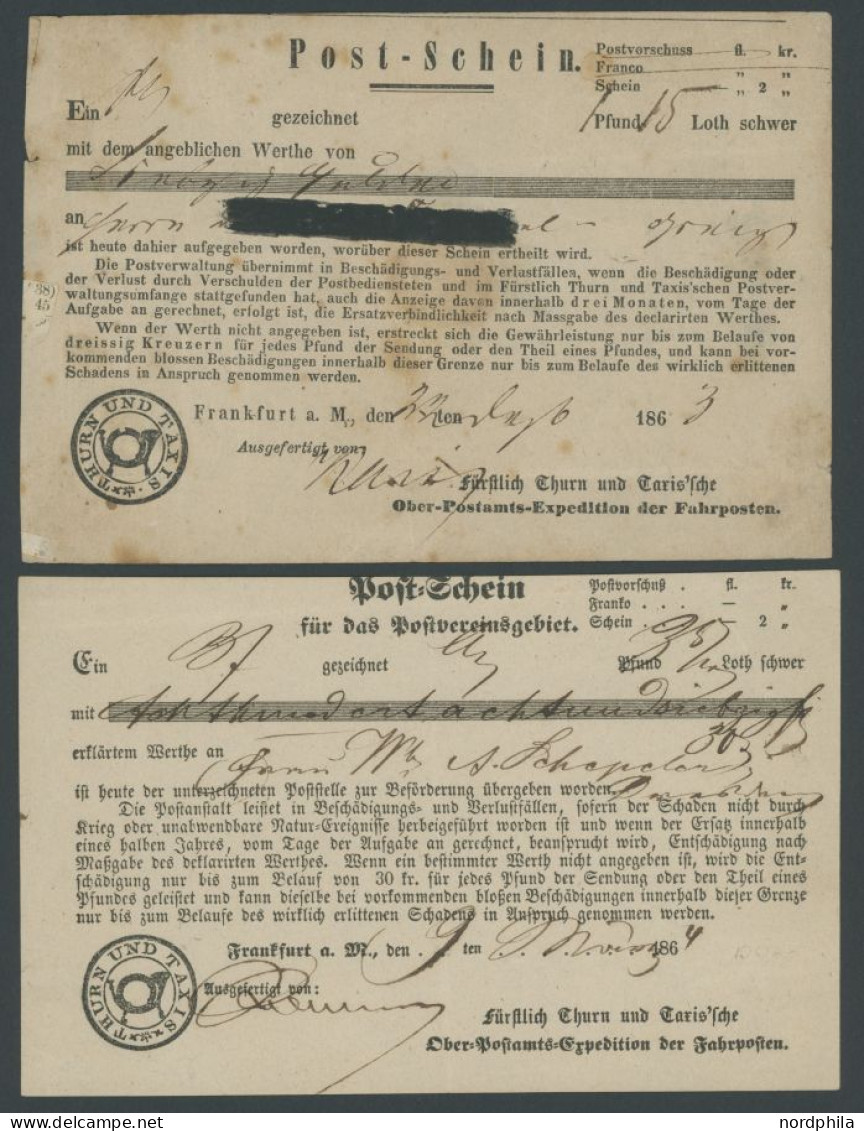 Post-Schein.
Postvorschuss fl. kr.
Franco „ „
Schein „ 2 „
Ein gezeichnet 1 Pfund 15 Loth schwer
mit dem angeblichen Werthe von
Gulden
an Herrn
ist heute dahier aufgegeben worden, worüber dieser Schein ertheilt wird.
Die Postverwaltung übernimmt in Beschädigungs- und Verlustfällen, wenn die Beschädigung oder
der Verlust durch Verschulden der Postbediensteten und im Fürstlich Thurn und Taxis'schen Postver-
waltungsumfange stattgefunden hat, auch die Anzeige davon innerhalb drei Monaten, vom Tage der
Aufgabe an gerechnet, erfolgt ist, die Ersatzverbindlichkeit nach Massgabe des declarirten Werthes.
Wenn der Werth nicht angegeben ist, erstreckt sich die Gewährleistung nur bis zum Belaufe von
dreissig Kreuzern für jedes Pfund der Sendung oder den Theil eines Pfundes, und kann bei vor-
kommenden blossen Beschädigungen innerhalb dieser Grenze nur bis zum Belaufe des wirklich erlittenen
Schadens in Anspruch genommen werden.
38)
45
THURN UND TAXIS
Frankfurt a. M., den ten 1863
Ausgefertigt von
Fürstlich Thurn und Taxis'sche
Ober-Postamts-Expedition der Fahrposten.
Post-Schein
für das Postvereinsgebiet.
Postvorschuß . fl. kr.
Franko . . . — „
Schein . . . — 2 „
Ein gezeichnet Pfund Loth schwer
mit Achthundertachtundsiebzig fl
erklärtem Werthe an Frau We A. Schepeler
ist heute der unterzeichneten Poststelle zur Beförderung übergeben worden.
Die Postanstalt leistet in Beschädigungs- und Verlustfällen, sofern der Schaden nicht durch
Krieg oder unabwendbare Natur-Ereignisse herbeigeführt worden ist und wenn der Ersatz innerhalb
eines halben Jahres, vom Tage der Aufgabe an gerechnet, beansprucht wird, Entschädigung nach
Maßgabe des deklarirten Werthes. Wenn ein bestimmter Werth nicht angegeben ist, wird die Ent-
schädigung nur bis zum Belauf von 30 kr. für jedes Pfund der Sendung oder den Theil eines
Pfundes geleistet und kann dieselbe bei vorkommenden bloßen Beschädigungen innerhalb dieser Grenze
nur bis zum Belaufe des wirklich erlittenen Schadens in Anspruch genommen werden.
THURN UND TAXIS
Frankfurt a. M., den 9. ten 1864
Ausgefertigt von:
Fürstlich Thurn und Taxis'sche
Ober-Postamts-Expedition der Fahrposten.
nordphila